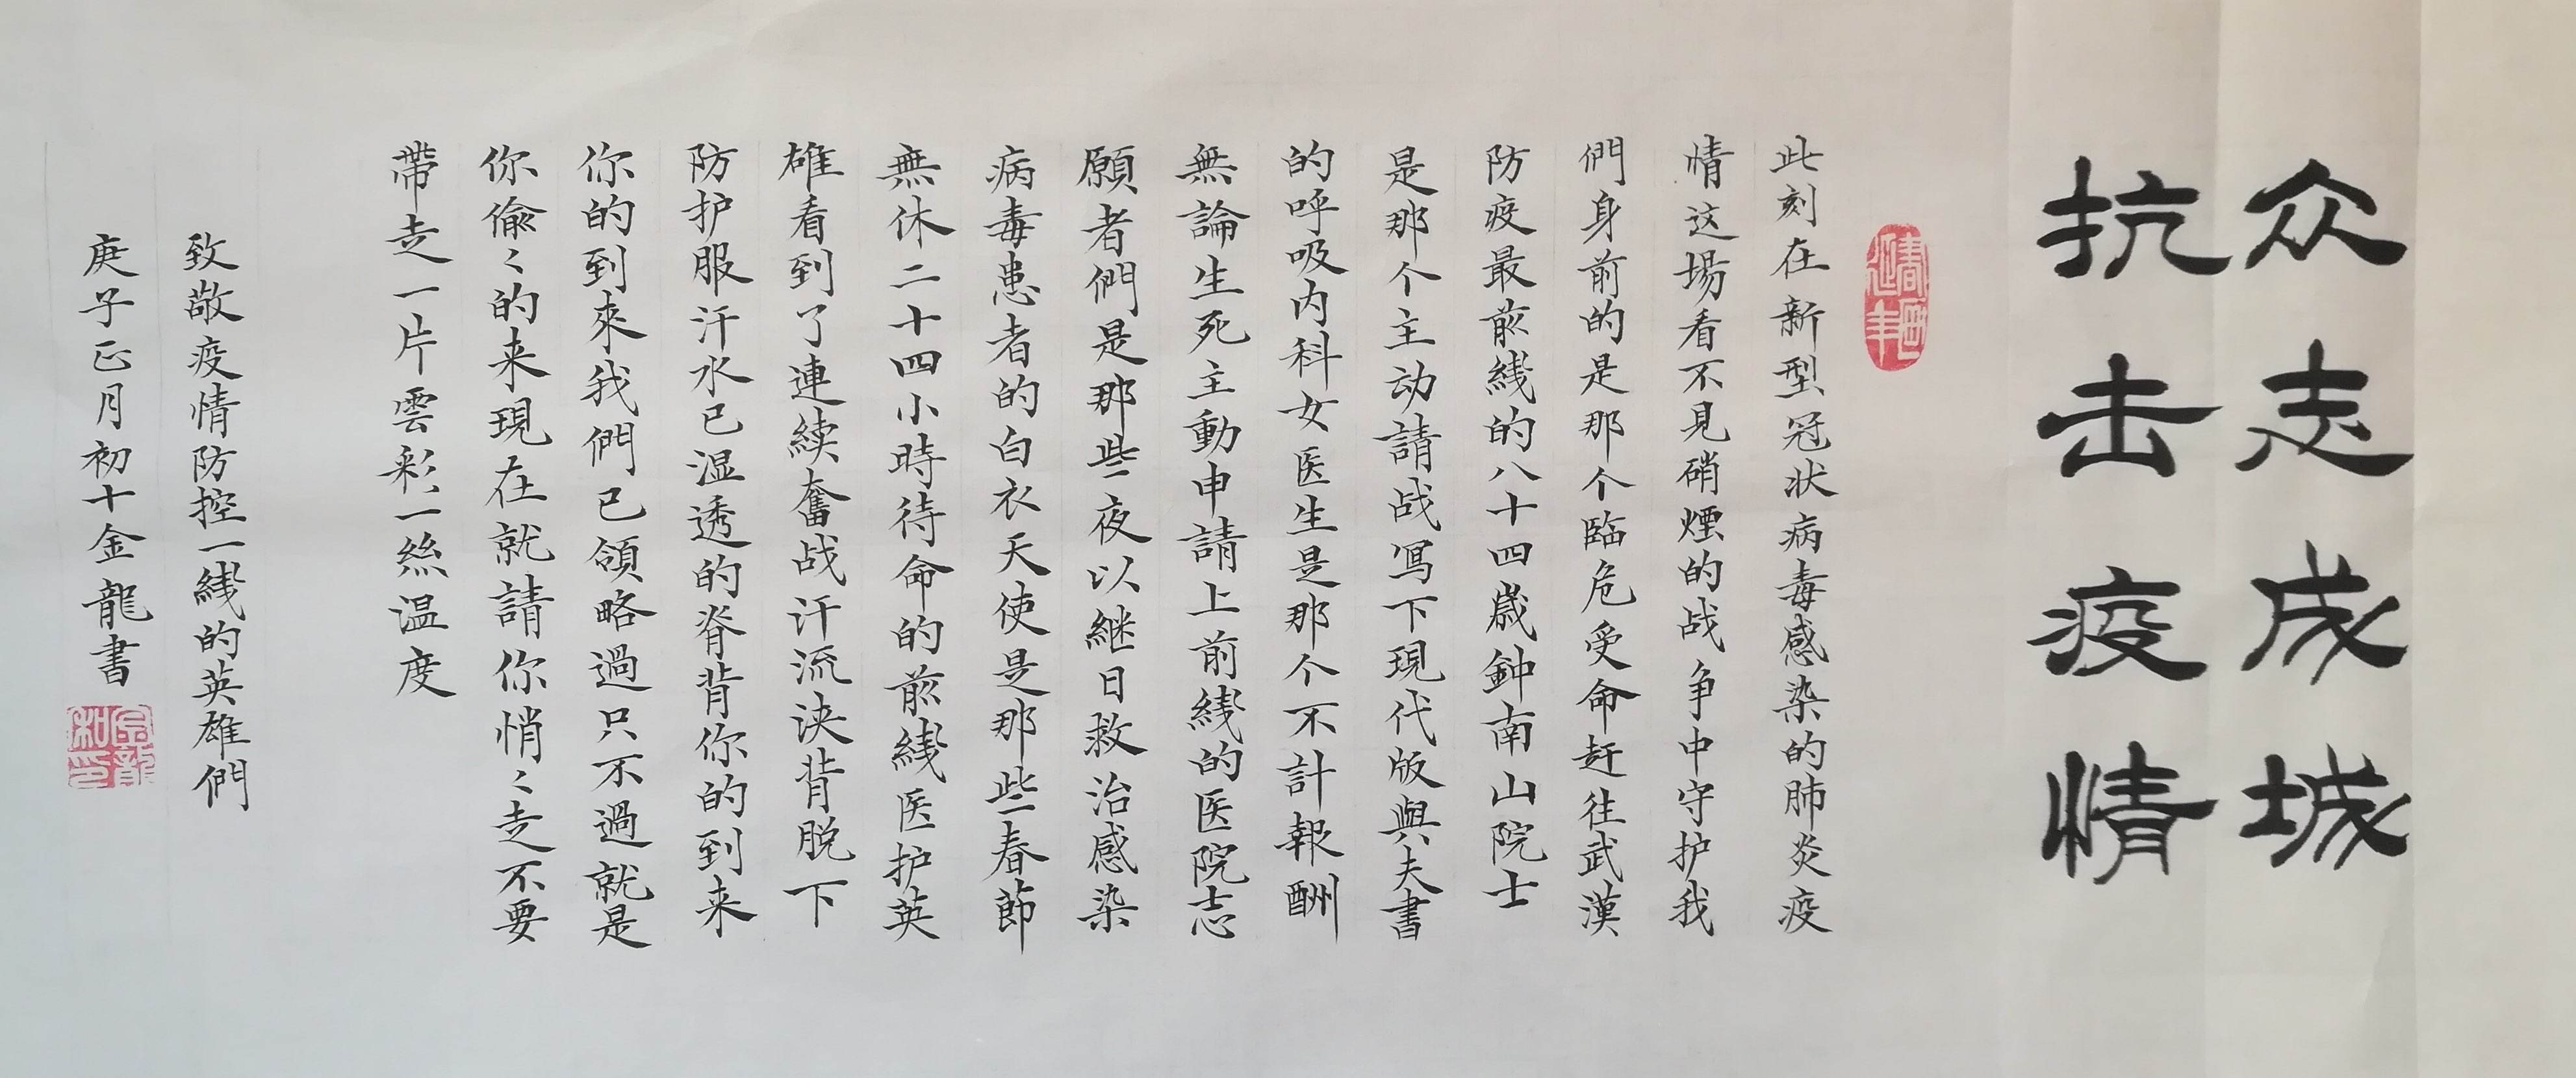 众志成城
抗击疫情
此刻在新型冠状病毒感染的肺炎疫
情这場看不見硝煙的战争中守护我
們身前的是那个臨危受命赶往武漢
防疫最前綫的八十四歲鈡南山院士
是那个主动請战写下現代版與夫書
的呼吸内科女医生是那个不計報酬
無論生死主動申請上前綫的医院志
願者們是那些夜以継日救治感染
病毒患者的白衣天使是那些春節
無休二十四小時待命的前綫医护英
雄看到了連續奮战汗流浃背脱下
防护服汗水已湿透的脊背你的到来
你的到來我們已領略過只不過就是
你偷々的来現在就請你悄々走不要
帶走一片雲彩一絲温度
致敬疫情防控一綫的英雄們
庚子正月初十金龍書